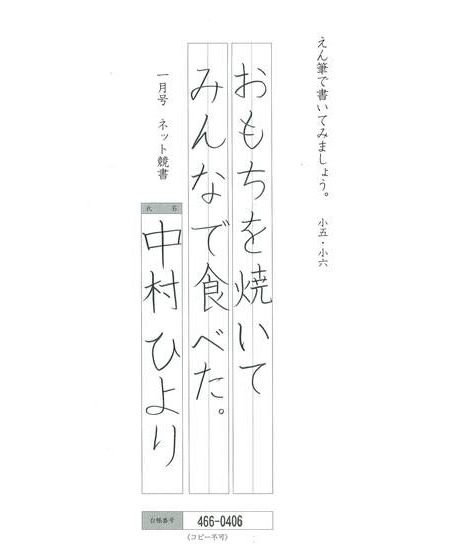 えん筆で書いてみましょう。 小五・小六
おもちを焼いて
みんなで食べた。
一月号 ネット競書
氏名
中村ひより
台帳番号 466-0406
(コピー不可)